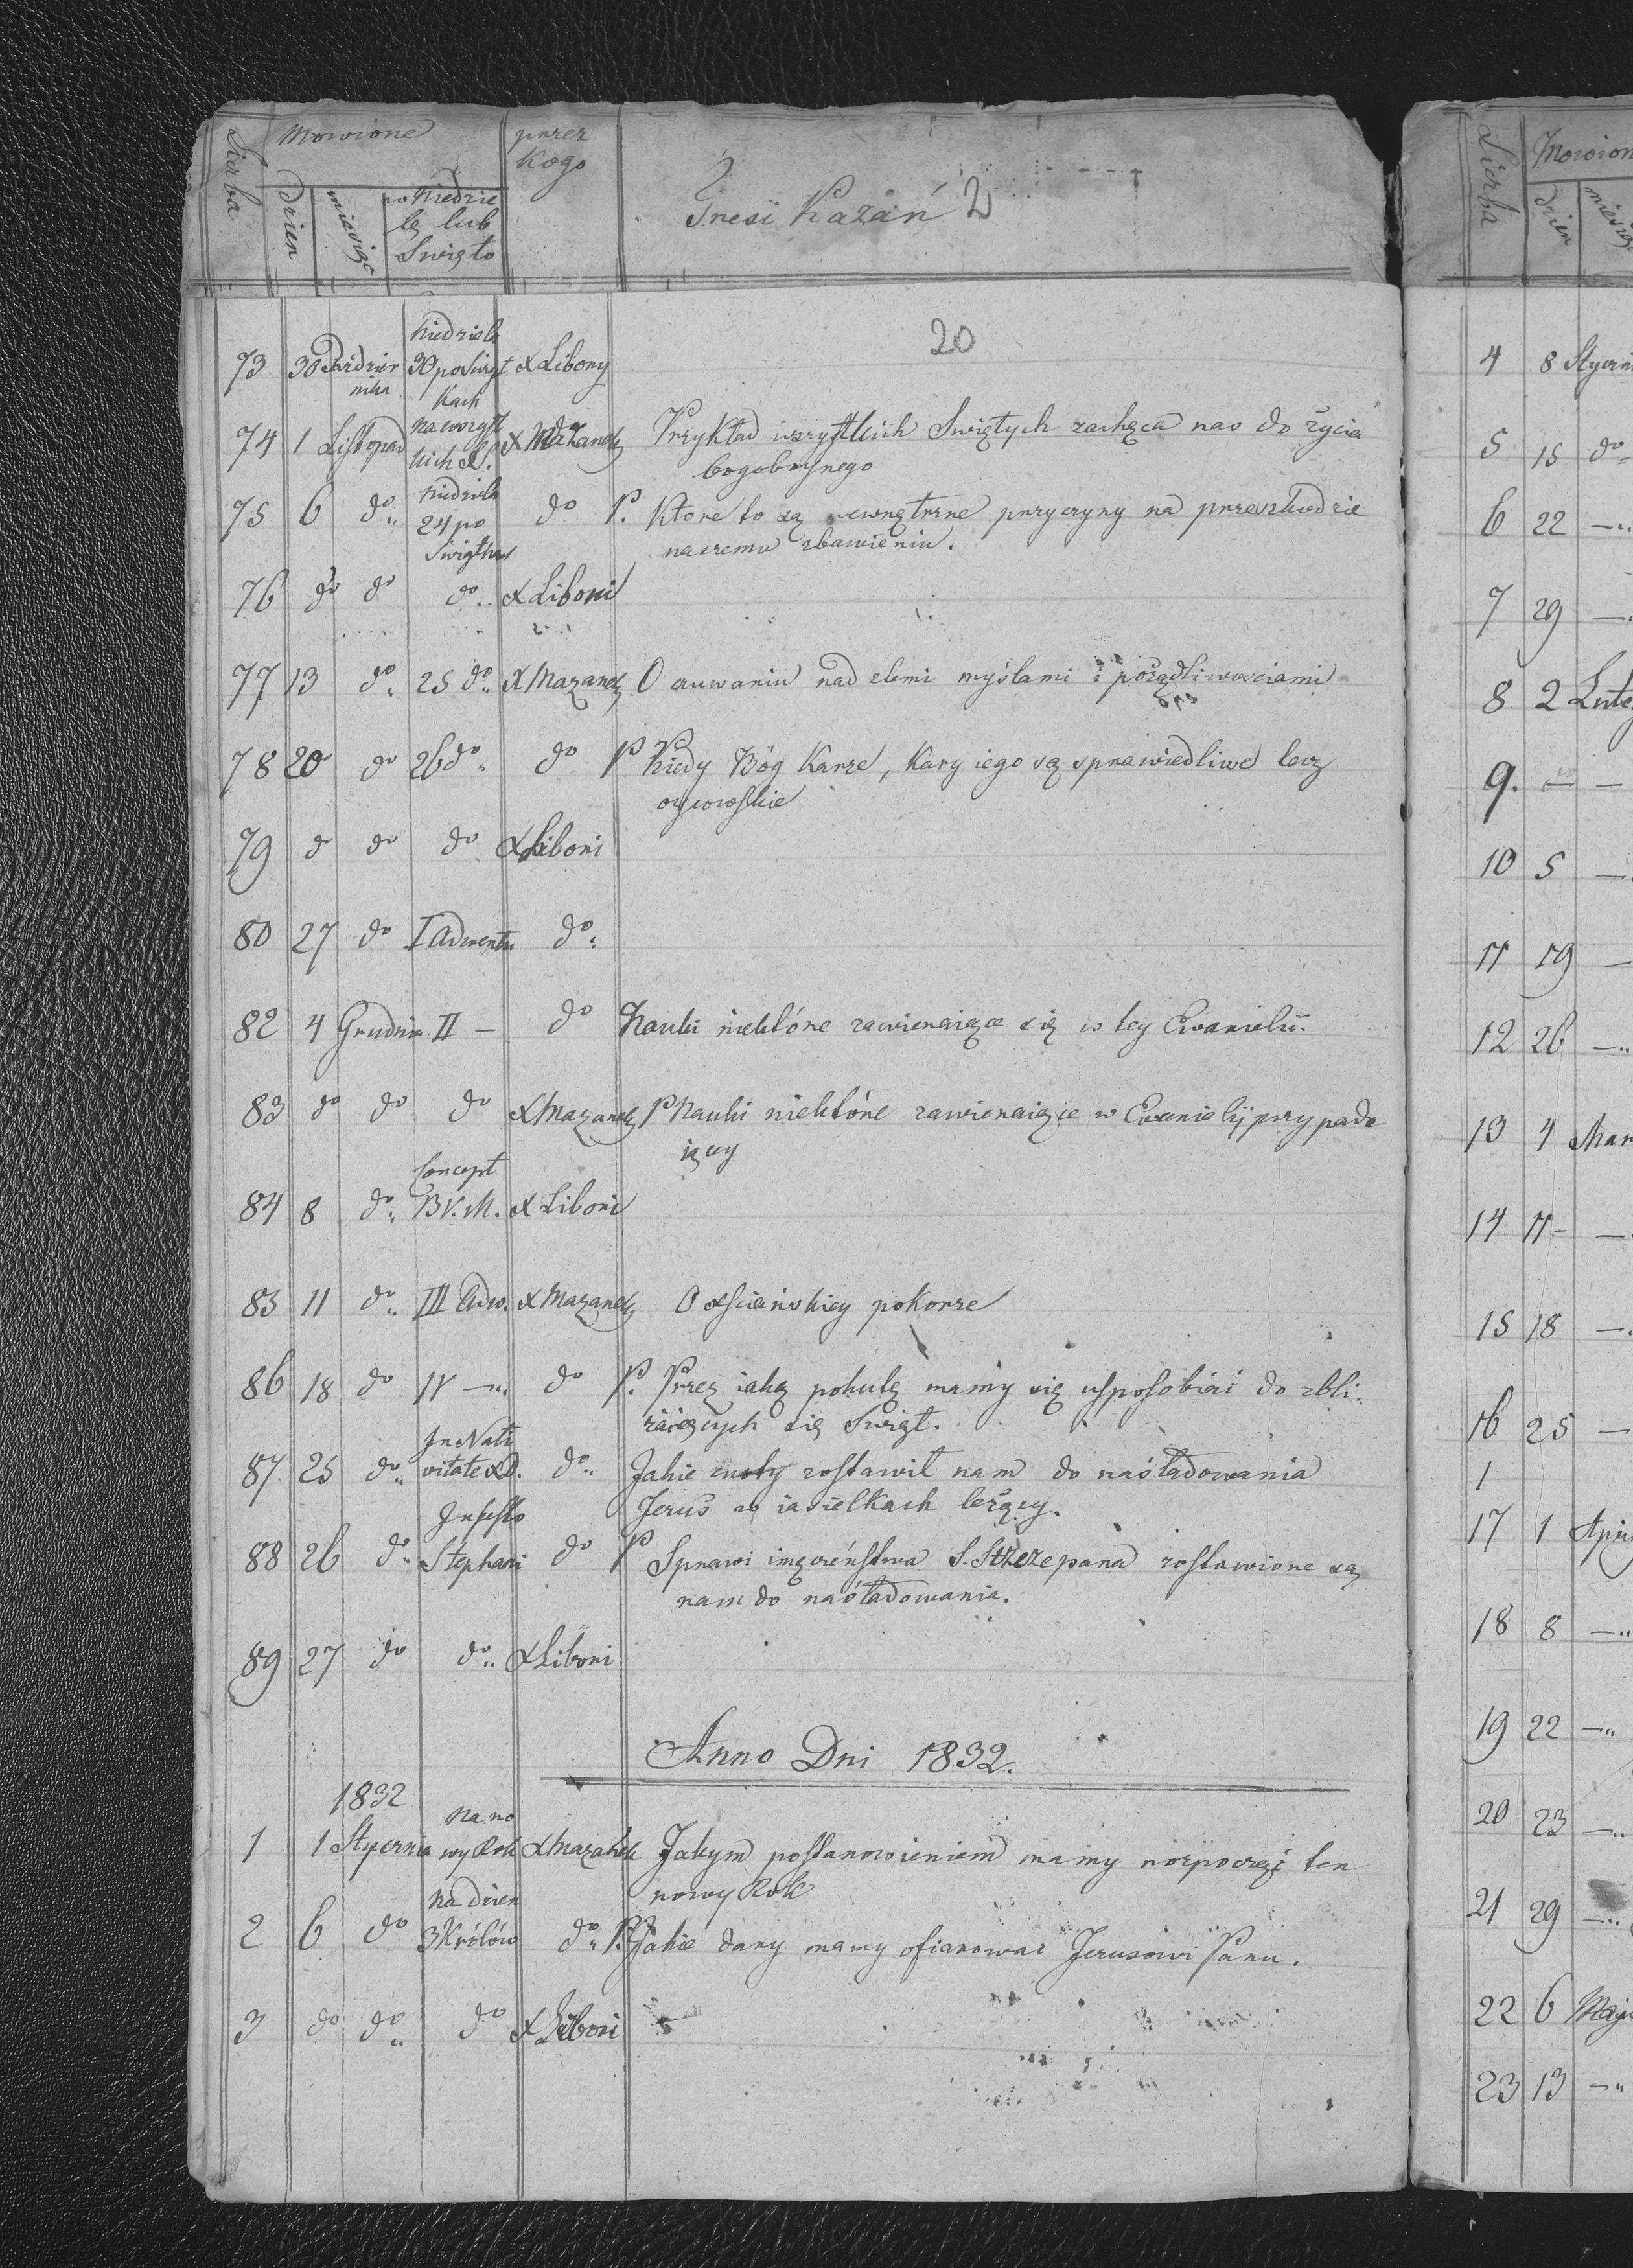 Liczba
Mowione
przez
Kogo
Treść Kazań 2
Dzien
miesiąc
po Niedzie
lę lub
Swięto
20
Niedziela
73 30 Paździer 30 po Swiąt X Libony
nika kach
Na wszyst
74 1 Listopad kich S. X Mazanek Przykład wszystkich Swiętych zachęca nas do życia
bogoboynego
Niedziela
75 6 do 24 po do P. Ktore to są wewnętrzne przyczyny na przeszkodzie
Swiątkach naszemu zbawieniu.
76 do do do X Liboni
77 13 do 25 do X Mazanek O czuwaniu nad złemi myślami i pożądliwosciami
78 20 do 26 do do P Kiedy Bóg karze, kary iego są sprawiedliwe lecz
oycowskie
79 do do do X Liboni
80 27 do I Adwentu do
82 4 Grudnia II — do Nauki niektóre zawieraiące się w tey Ewanielii.
83 do do do X Mazanek P Nauki niektóre zawieraiące w Ewanielij przypada
iącey
Concept
84 8 do B.V.M. X Liboni
83 11 do III Adw. X Mazanek O xściańskiey pokorze
86 18 do IV — do P. Przez iaką pokutę mamy się usposobiać do zbli
żaiących się Swiąt.
In Nati
87 25 do vitate X D. do Jakie cnoty zostawił nam do naśladowania
Jezus w iasielkach leżący.
In festo
88 26 do Stephani do P Sprawi męczéństwa S. Szczepana zostawione są
nam do naśladowania.
89 27 do do X Liboni
Anno Dni 1832.
1832
Na no
1 1 Stycznia wy Rok X Mazanek Jakym postanowieniem mamy rozpocząć ten
nowy Rok
Na dzien
2 6 do 3 Królów do P. Jakie dary mamy ofiarować Jezusowi Panu.
3 do do do X Liboni
Liczba
Mowion
dzien
miesiąc
4 8 Styczn
5 15 do
6 22 —
7 29 —
8 2 Lute
9. — —
10 5 —
11 19 —
12 26 —
13 4 Mar
14 11 — —
15 18 —
16 25 —
1
17 1 Apri
18 8 —
19 22 —
20 23 —
21 29 —
22 6 Maj
23 13 —